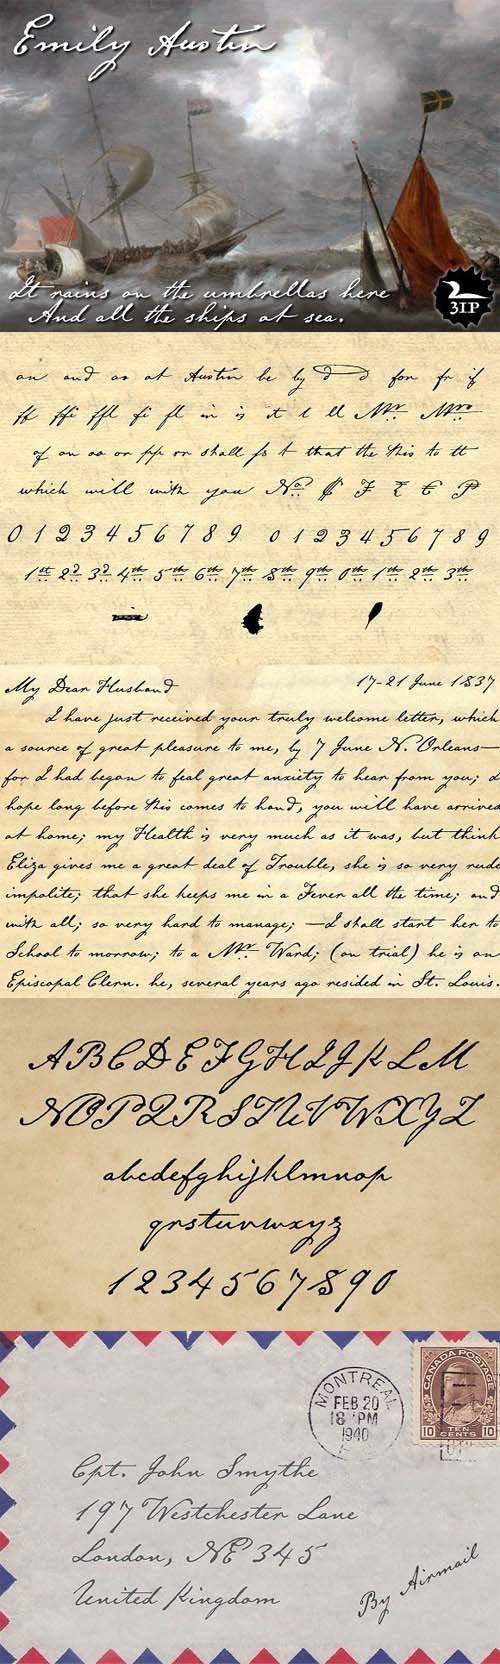 Emily Austin
It rains on the umbrellas here
And all the ships at sea.
3IP
an and as at Austin be by d d for fr if
ff ffi ffl fi fl in is it l ll Mr. Mrs.
of on oo or pp rr shall ss t that the this to tt
which will with you No. ₣ £ € ₱
0 1 2 3 4 5 6 7 8 9 0 1 2 3 4 5 6 7 8 9
1st 2d 3d 4th 5th 6th 7th 8th 9th 0th 1th 2th 3th
My Dear Husband 17-21 June 1837
I have just received your truly welcome letter, which
a source of great pleasure to me, by 7 June N. Orleans—
for I had began to feal great anxiety to hear from you; I
hope long before this comes to hand, you will have arrived
at home; my Health is very much as it was, but think
Eliza gives me a great deal of Trouble, she is so very rude
impolite; that she keeps me in a Fever all the time; and
with all; so very hard to manage; —I shall start her to
School to morrow; to a Mr. Ward; (on trial) he is an
Episcopal Clern. he, several years ago resided in St. Louis.
ABCDEFGHIJKLM
NOPQRSTUVWXYZ
abcdefghijklmnop
qrstuvwxyz
1234567890
MONTREAL
FEB 20
18 PM
1940
CANADA POSTAGE
10 TEN CENTS 10
Cpt. John Smythe
197 Westchester Lane
London, NE 345
United Kingdom
By Airmail